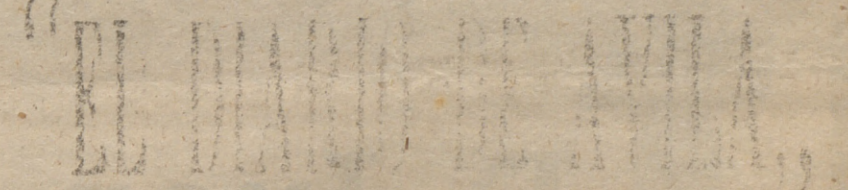 “EL DIARIO DE AVILA”